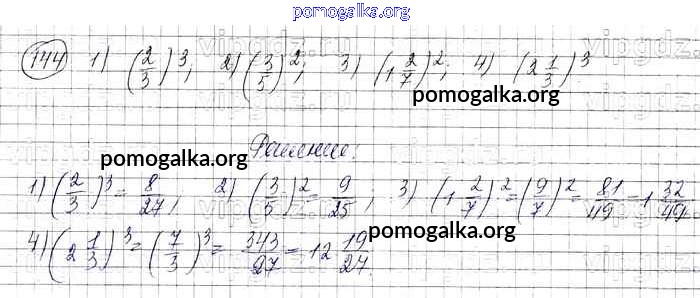 pomogalka.org
144 1) (2/3)³; 2) (3/5)²; 3) (1 2/7)²; 4) (2 1/3)³
pomogalka.org
Решение:
pomogalka.org
1) (2/3)³ = 8/27; 2) (3/5)² = 9/25; 3) (1 2/7)² = (9/7)² = 81/49 = 1 32/49
pomogalka.org
4) (2 1/3)³ = (7/3)³ = 343/27 = 12 19/27.
vipgdz.ru